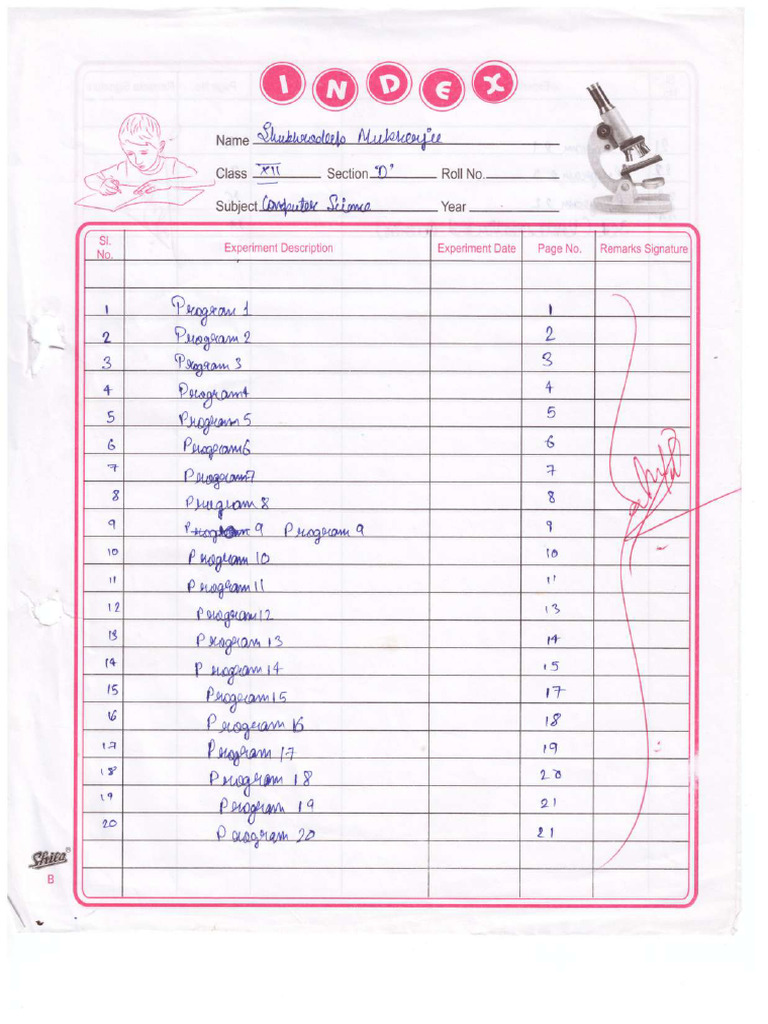 INDEX
Name Shubhradeep Mukherjee
Class XII Section "D" Roll No.
Subject Computer Science Year
Sl. No. Experiment Description Experiment Date Page No. Remarks Signature
1 Program 1 1
2 Program 2 2
3 Program 3 3
4 Program 4 4
5 Program 5 5
6 Program 6 6
7 Program 7 7
8 Program 8 8
9 Program 9 Program 9 9
10 Program 10 10
11 Program 11 11
12 Program 12 13
13 Program 13 14
14 Program 14 15
15 Program 15 17
16 Program 16 18
17 Program 17 19
18 Program 18 20
19 Program 19 21
20 Program 20 21
Shiva
B